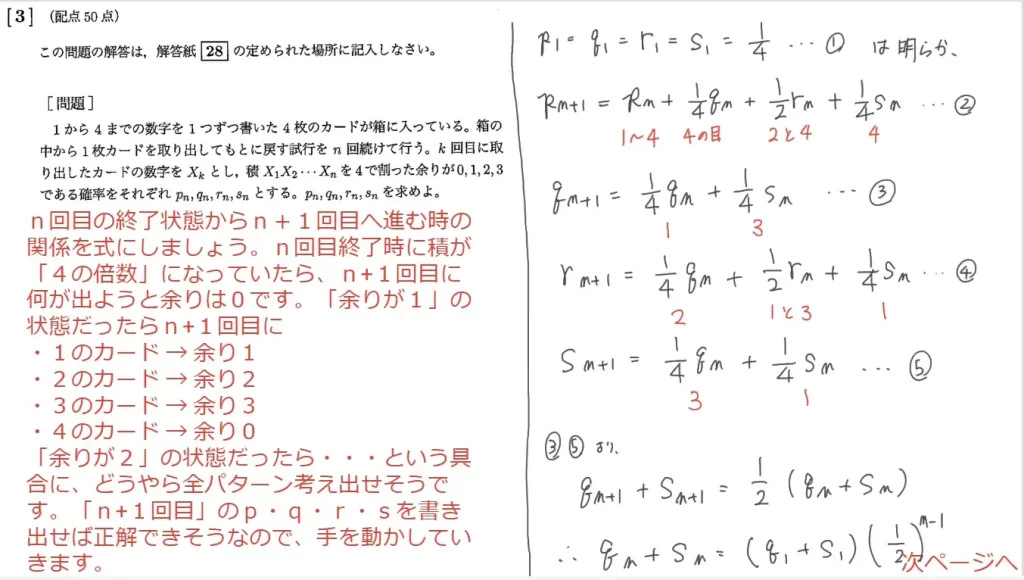 [3] (配点50点)
この問題の解答は,解答紙 28 の定められた場所に記入しなさい。
[問題]
1から4までの数字を1つずつ書いた4枚のカードが箱に入っている。箱の
中から1枚カードを取り出してもとに戻す試行を n 回続けて行う。k 回目に取
り出したカードの数字を Xₖ とし,積 X₁X₂⋯Xₙ を4で割った余りが0,1,2,3
である確率をそれぞれ pₙ, qₙ, rₙ, sₙ とする。pₙ, qₙ, rₙ, sₙ を求めよ。
n回目の終了状態からn+1回目へ進む時の
関係を式にしましょう。n回目終了時に積が
「4の倍数」になっていたら、n+1回目に
何が出ようと余りは0です。「余りが1」の
状態だったらn+1回目に
・1のカード→余り1
・2のカード→余り2
・3のカード→余り3
・4のカード→余り0
「余りが2」の状態だったら・・・という具
合に、どうやら全パターン考え出せそうで
す。「n+1回目」のp・q・r・sを書き
出せば正解できそうなので、手を動かしてい
きます。
p₁ = q₁ = r₁ = s₁ = 1/4 … ① は明らか、
pₙ₊₁ = pₙ + 1/4 qₙ + 1/2 rₙ + 1/4 sₙ … ②
1~4 4の目 2と4 4
qₙ₊₁ = 1/4 qₙ + 1/4 sₙ … ③
1 3
rₙ₊₁ = 1/4 qₙ + 1/2 rₙ + 1/4 sₙ … ④
2 1と3 1
sₙ₊₁ = 1/4 qₙ + 1/4 sₙ … ⑤
3 1
③⑤より、
qₙ₊₁ + sₙ₊₁ = 1/2 (qₙ + sₙ)
∴ qₙ + sₙ = (q₁ + s₁)(1/2)ⁿ⁻¹
次ページへ